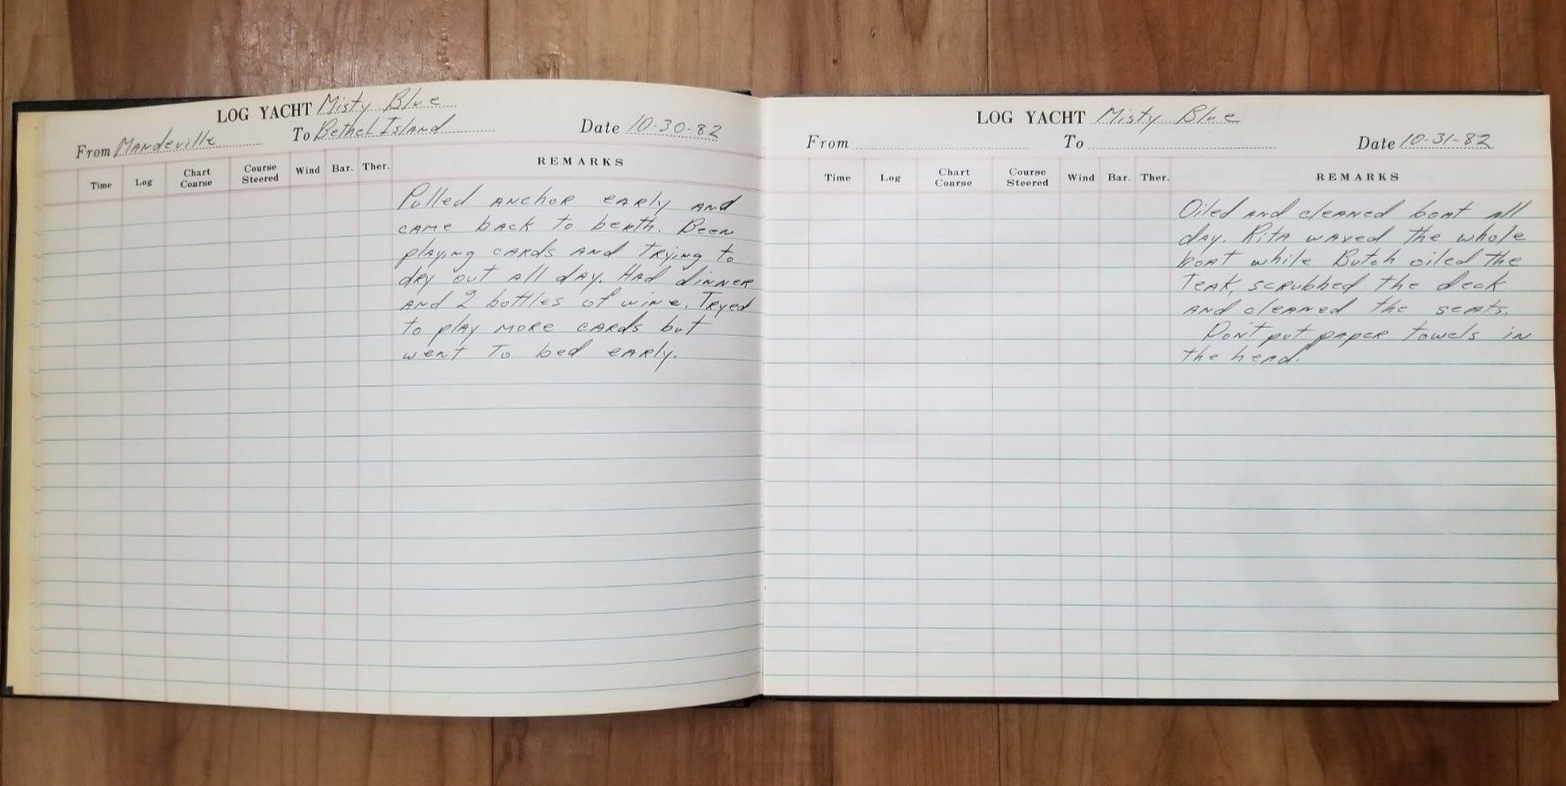 LOG YACHT Misty Blue
From Mandeville To Bethel Island Date 10-30-82
Time Log Chart Course Course Steered Wind Bar. Ther. REMARKS
Pulled anchor early and
came back to berth. Been
playing cards and trying to
dry out all day. Had dinner
and 2 bottles of wine. Tryed
to play more cards but
went to bed early.
LOG YACHT Misty Blue
From To Date 10-31-82
Time Log Chart Course Course Steered Wind Bar. Ther. REMARKS
Oiled and cleaned boat all
day. Rita waxed the whole
boat while Butch oiled the
Teak, scrubbed the deck
and cleaned the seats.
Don't put paper towels in
the head.